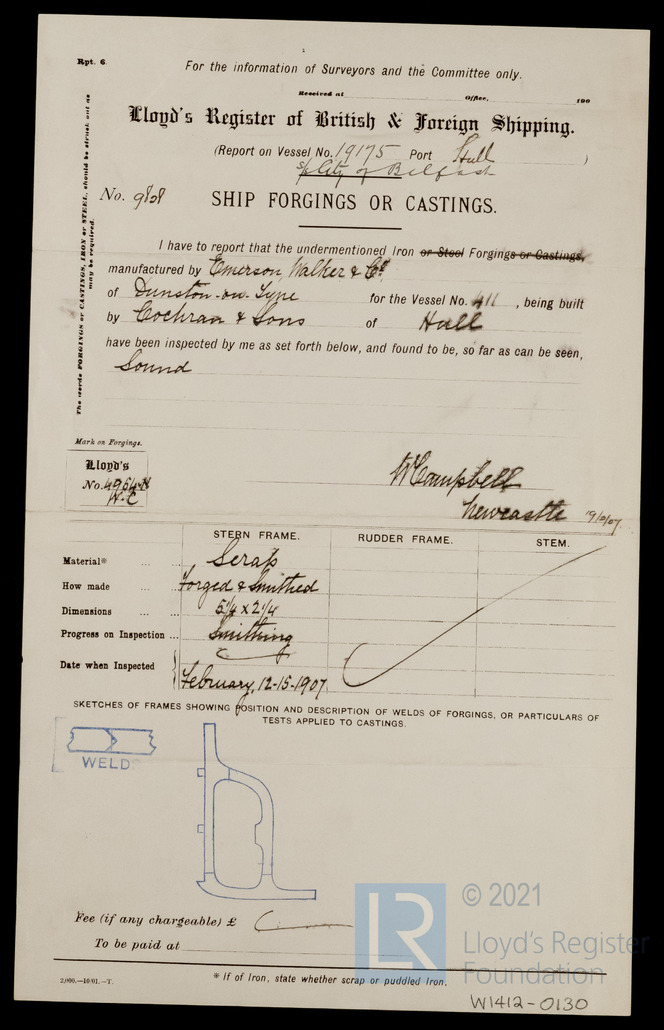 Rpt. 6.
For the information of Surveyors and the Committee only.
Received at Office, 190
Lloyd's Register of British & Foreign Shipping.
(Report on Vessel No. 19175 Port Hull )
S/s City of Belfast
No. 9828
SHIP FORGINGS OR CASTINGS.
The words FORGINGS or CASTINGS, IRON or STEEL, should be struck out as may be required.
I have to report that the undermentioned Iron or Steel Forgings or Castings,
manufactured by Emerson, Walker & Co.
of Dunston-on-Tyne for the Vessel No. 411 , being built
by Cochran & Sons of Hull
have been inspected by me as set forth below, and found to be, so far as can be seen,
Sound
Mark on Forgings.
Lloyd's
No. 4964
W.C
W Campbell
Newcastle
STERN FRAME. RUDDER FRAME. STEM.
Material* Scrap
How made Forged & Smithed
Dimensions 5¼ x 2¼
Progress on Inspection Smithing
Date when Inspected February, 12-15-1907
SKETCHES OF FRAMES SHOWING POSITION AND DESCRIPTION OF WELDS OF FORGINGS, OR PARTICULARS OF
TESTS APPLIED TO CASTINGS.
WELDS
Fee (if any chargeable) £
To be paid at
* If of Iron, state whether scrap or puddled Iron.
2,000.—10/01.—T.
LR
© 2021
Lloyd's Register
Foundation
W1412-0130